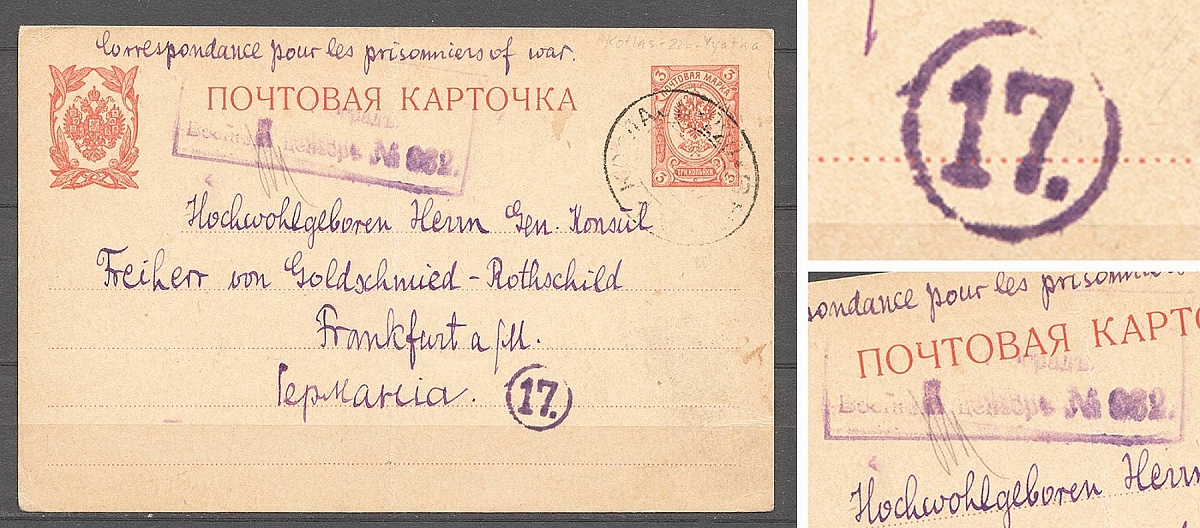 Correspondance pour les prisonniers of war.
Kotlas-226-Vyatka
ПОЧТОВАЯ КАРТОЧКА
3 3
ПОЧТОВАЯ МАРКА
ТРИ КОПѢЙКИ
3 3
цензоръ № 062.
Hochwohlgeboren Herrn Gen. Konsul
Freiherr von Goldschmied-Rothschild
Frankfurt a/M.
Германіа.
17.
17.
spondance pour les prisonniers
ПОЧТОВАЯ КАРТО
цензоръ № 062.
Hochwohlgeboren Herrn